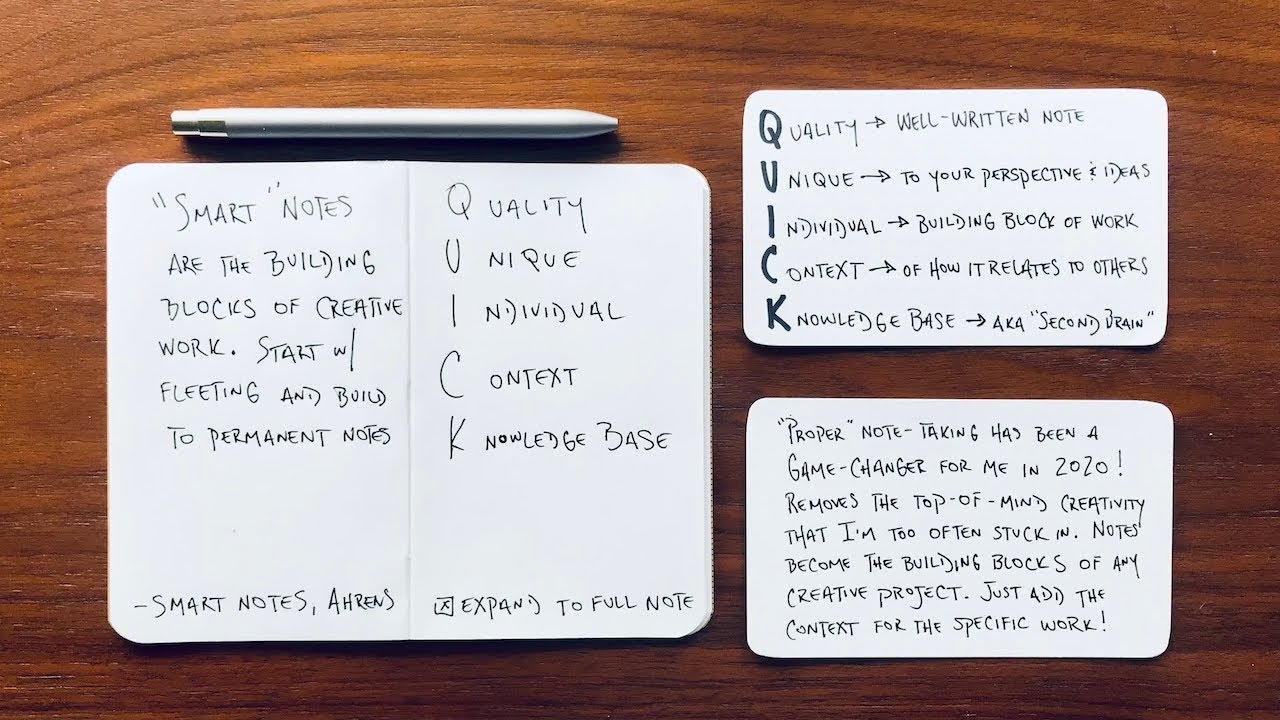 "SMART" NOTES
ARE THE BUILDING
BLOCKS OF CREATIVE
WORK. START W/
FLEETING AND BUILD
TO PERMANENT NOTES
-SMART NOTES, AHRENS
QUALITY
UNIQUE
INDIVIDUAL
CONTEXT
KNOWLEDGE BASE
☒ EXPAND TO FULL NOTE
QUALITY → WELL-WRITTEN NOTE
UNIQUE → TO YOUR PERSPECTIVE & IDEAS
INDIVIDUAL → BUILDING BLOCK OF WORK
CONTEXT → OF HOW IT RELATES TO OTHERS
KNOWLEDGE BASE → AKA "SECOND BRAIN"
"PROPER" NOTE-TAKING HAS BEEN A
GAME-CHANGER FOR ME IN 2020!
REMOVES THE TOP-OF-MIND CREATIVITY
THAT I'M TOO OFTEN STUCK IN. NOTES
BECOME THE BUILDING BLOCKS OF ANY
CREATIVE PROJECT. JUST ADD THE
CONTEXT FOR THE SPECIFIC WORK!